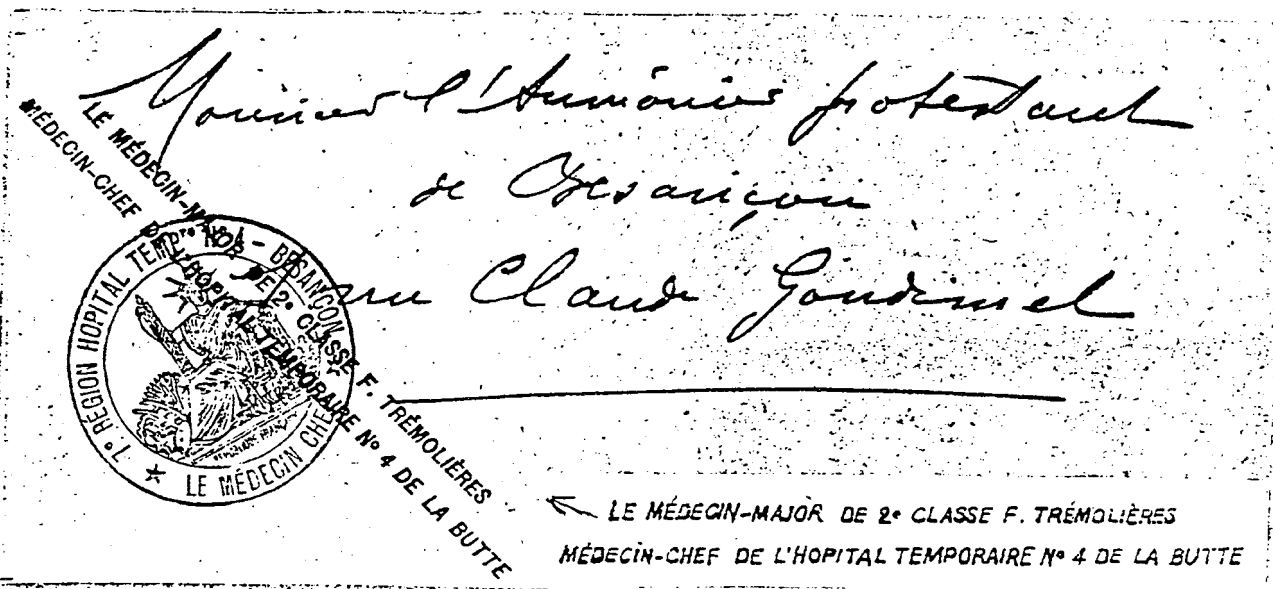 Monsieur l'Aumônier protestant
de Besançon
rue Claude Goudimel
LE MÉDECIN-MAJOR DE 2e CLASSE F. TRÉMOLIÈRES
MÉDECIN-CHEF DE L'HOPITAL TEMPORAIRE No 4 DE LA BUTTE
7e RÉGION HOPITAL TEMPre No 4 - BESANÇON
LE MÉDECIN CHEF
LE MÉDECIN-MAJOR DE 2e CLASSE F. TRÉMOLIÈRES
MÉDECIN-CHEF DE L'HOPITAL TEMPORAIRE No 4 DE LA BUTTE